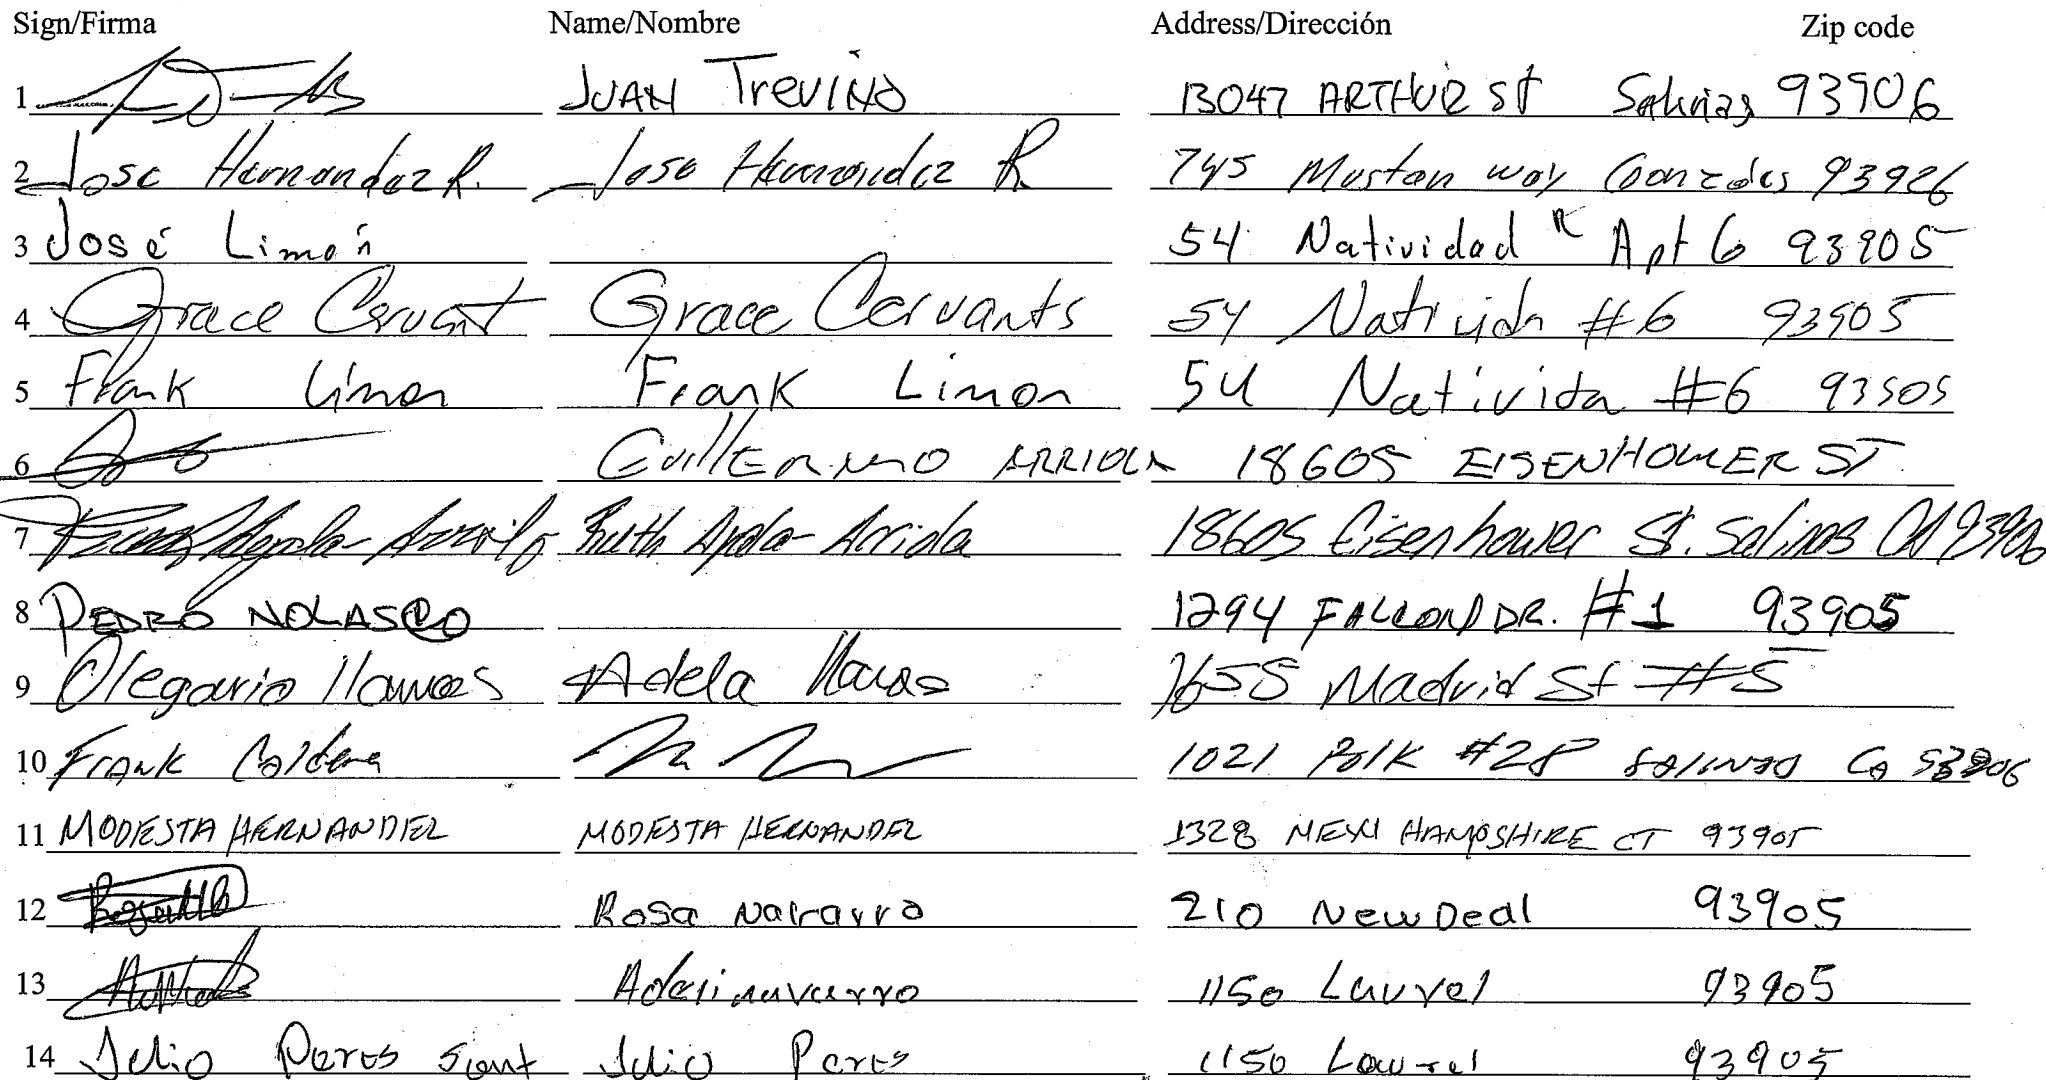 Sign/Firma Name/Nombre Address/Dirección Zip code
1 JUAN TreviÑo 13047 ARTHUR St Salinas 93906
2 Jose Hernandez R. Jose Hernandez R 745 Mustan way Gonzales 93926
3 José Limón 54 Natividad Apt 6 93905
4 Grace Cervant Grace Cervants 54 Nativida #6 93905
5 Frank Limon Frank Limon 54 Nativida #6 93905
6 Guillermo ARRIOLA 18605 EISENHOWER ST.
7 Ruth Ayala-Arriola 18605 Eisenhower St. Salinas CA 93906
8 PEDRO NOLASCO 1294 FALLON DR. #1 93905
9 Olegario Adela 1655 Madrid St #5
10 Frank 1021 Polk #28 Salinas Ca 93906
11 MODESTA HERNANDEZ MODESTA HERNANDEZ 1328 NEW HAMPSHIRE CT 93905
12 Rosa Navarro 210 New Deal 93905
13 1150 Laurel 93905
14 Julio Peres Sant Julio Peres 1150 Laurel 93905